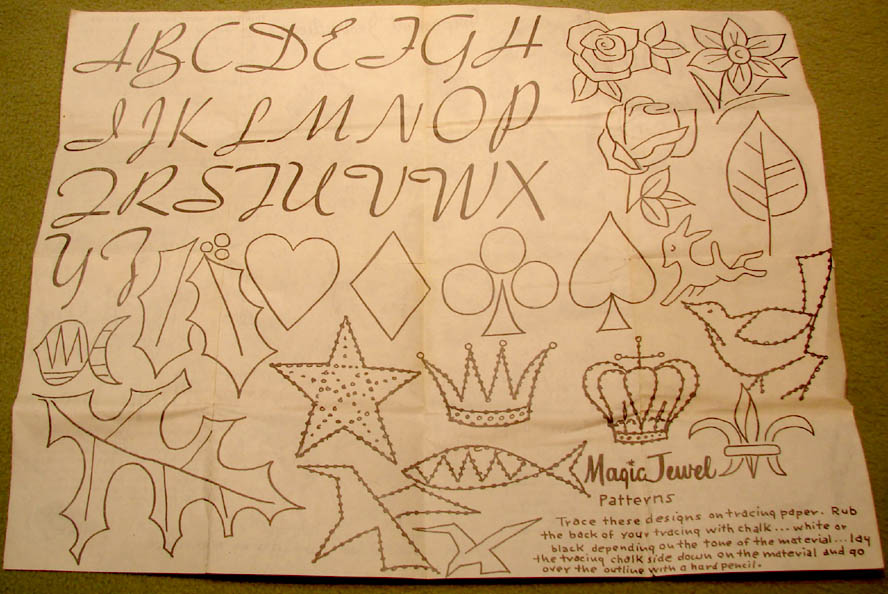 ABCDEFGH
IJKLMNOP
QRSTUVWX
YZ
Magic Jewel
Patterns
Trace these designs on tracing paper. Rub
the back of your tracing with chalk... white or
black depending on the tone of the material... lay
the tracing chalk side down on the material and go
over the outline with a hard pencil.